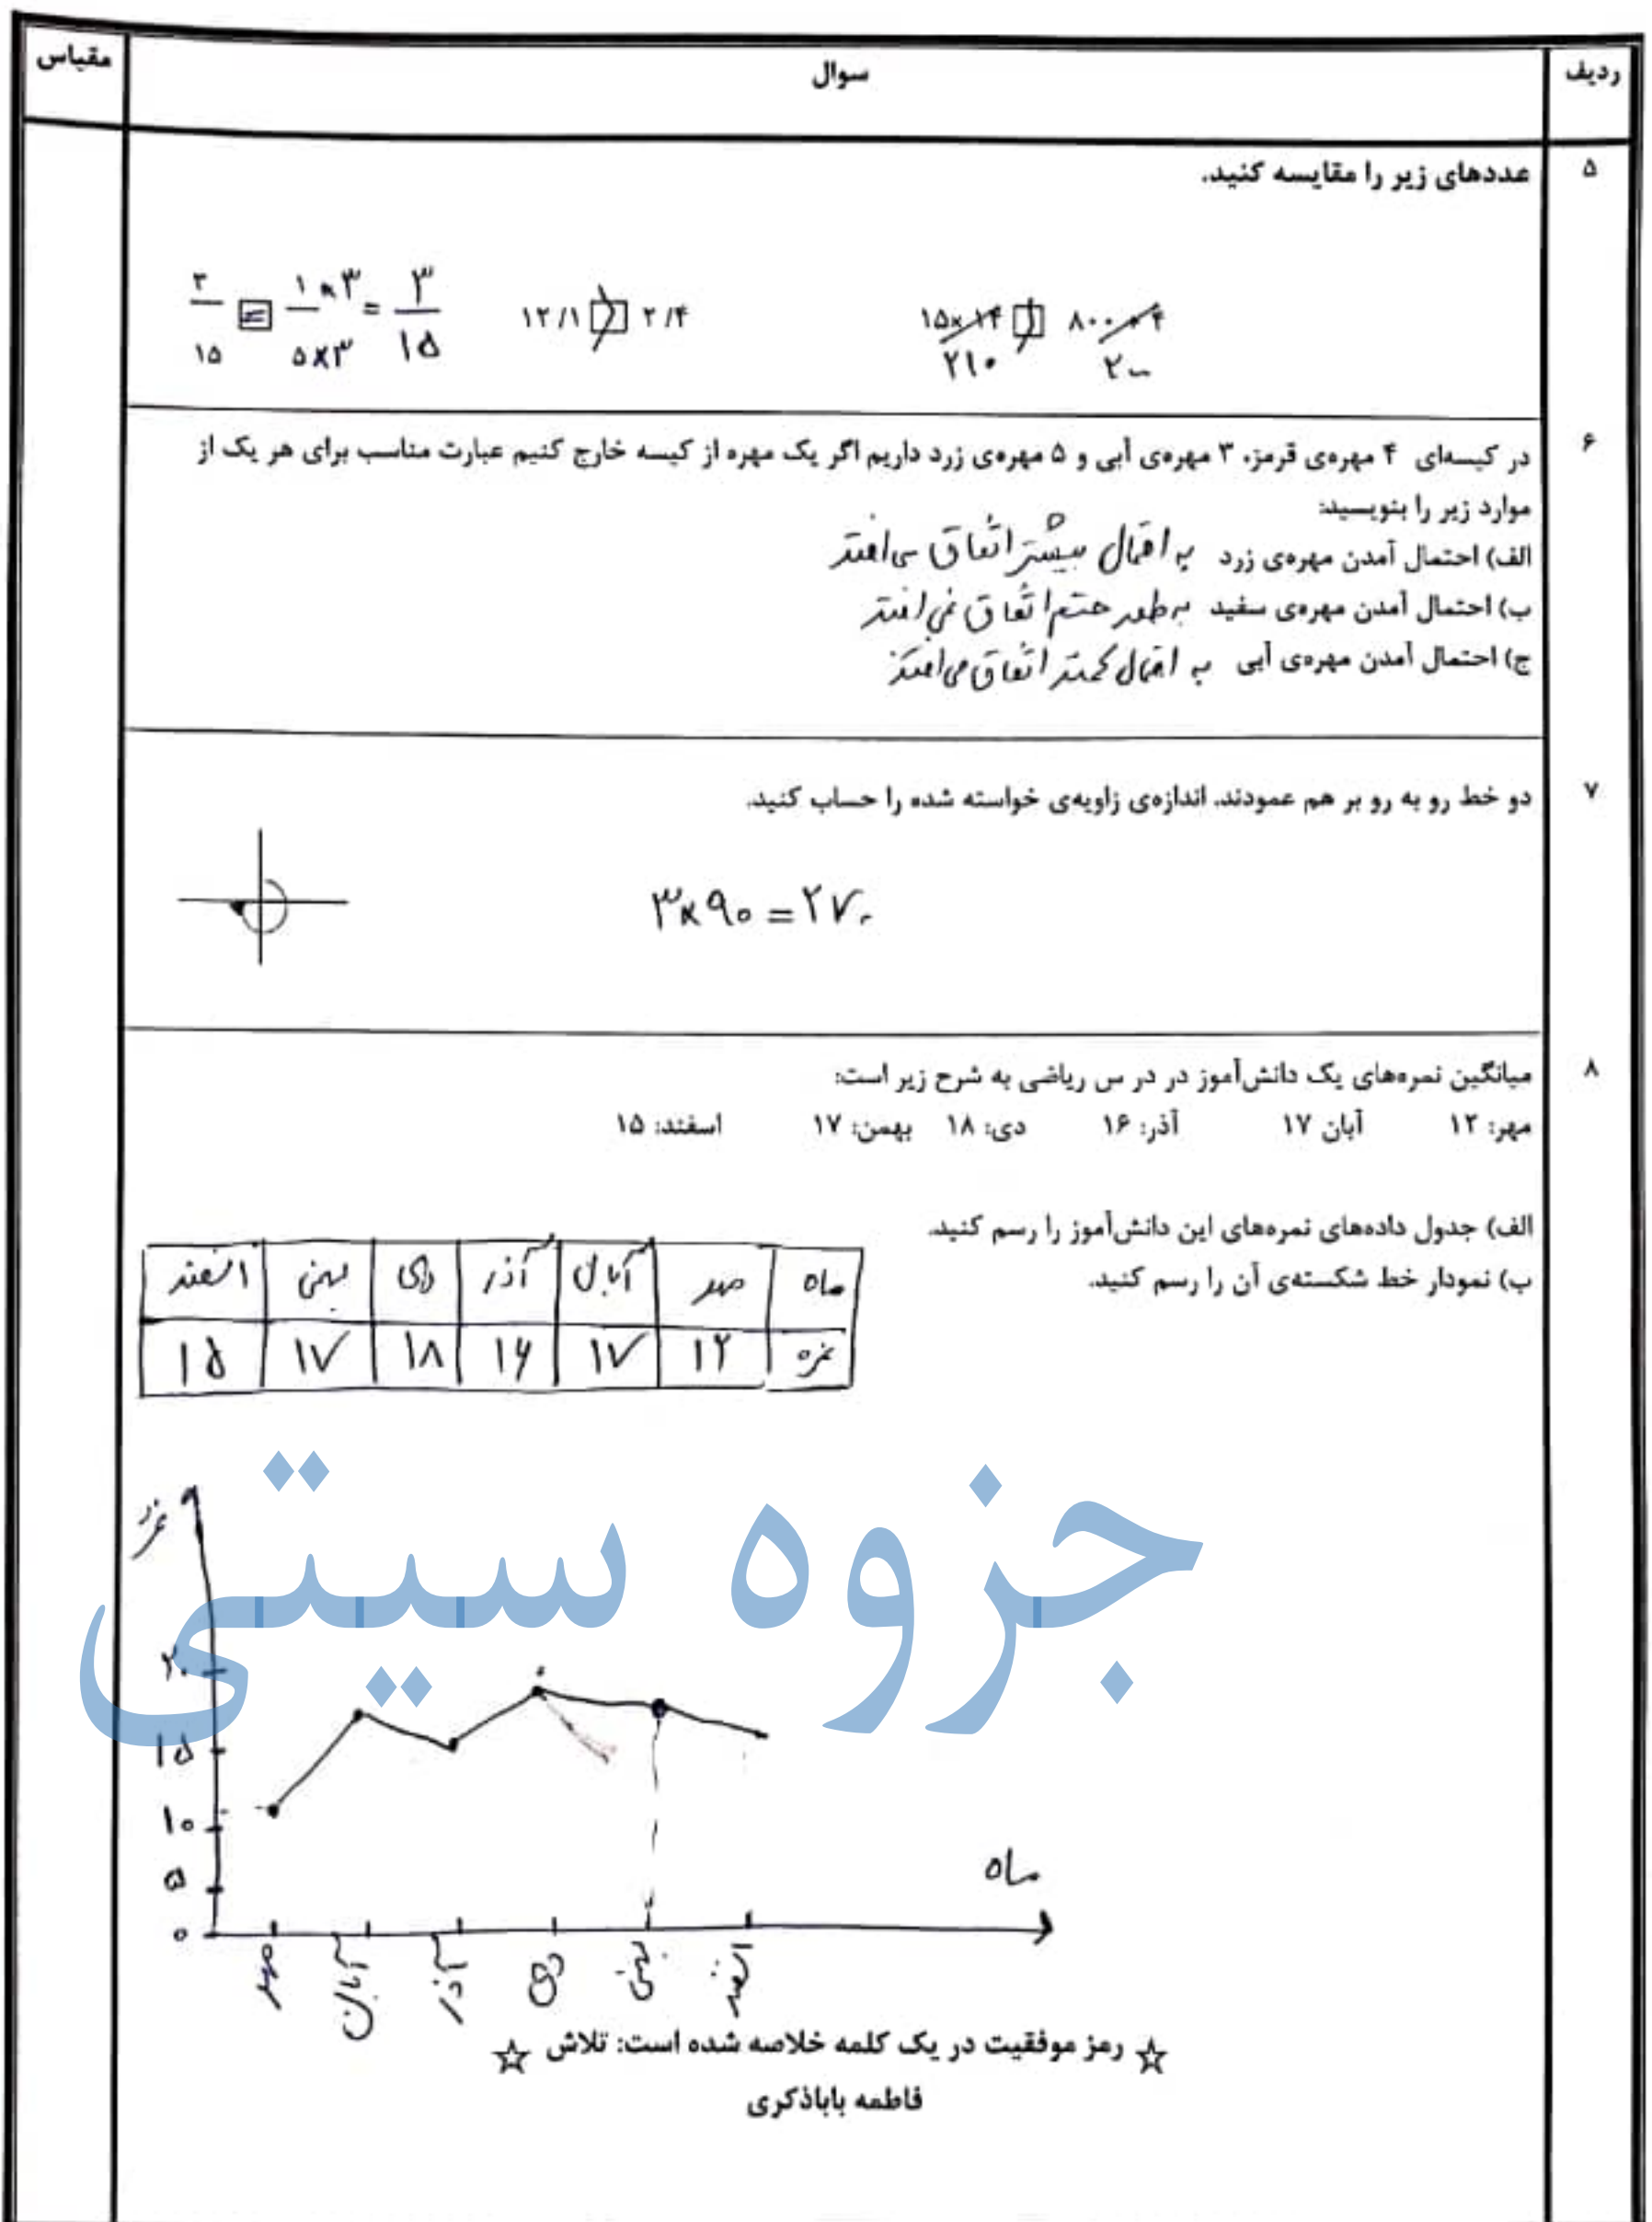 ردیف سوال مقیاس
۵ عددهای زیر را مقایسه کنید.
۱۵×۱۴ > ۸۰۰÷۴ ۱۲/۱ > ۲/۴ ۳/۱۵ = ۱×۳/۵×۳ = ۳/۱۵
۲۱۰ ۲۰۰
۶ در کیسه‌ای ۴ مهره‌ی قرمز، ۳ مهره‌ی آبی و ۵ مهره‌ی زرد داریم اگر یک مهره از کیسه خارج کنیم عبارت مناسب برای هر یک از
موارد زیر را بنویسید:
الف) احتمال آمدن مهره‌ی زرد به احتمال بیشتر اتفاق می‌افتد
ب) احتمال آمدن مهره‌ی سفید به‌طور حتم اتفاق نمی‌افتد
ج) احتمال آمدن مهره‌ی آبی به احتمال کمتر اتفاق می‌افتد
۷ دو خط رو به رو بر هم عمودند. اندازه‌ی زاویه‌ی خواسته شده را حساب کنید.
۳×۹۰=۲۷۰
۸ میانگین نمره‌های یک دانش‌آموز در در س ریاضی به شرح زیر است:
مهر: ۱۲ آبان ۱۷ آذر: ۱۶ دی: ۱۸ بهمن: ۱۷ اسفند: ۱۵
الف) جدول داده‌های نمره‌های این دانش‌آموز را رسم کنید.
ب) نمودار خط شکسته‌ی آن را رسم کنید.
ماه مهر آبان آذر دی بهمن اسفند
نمره ۱۲ ۱۷ ۱۶ ۱۸ ۱۷ ۱۵
جزوه سیتی
نمره
۲۰
۱۵
۱۰
۵
۰
ماه
مهر آبان آذر دی بهمن اسفند
☆ رمز موفقیت در یک کلمه خلاصه شده است: تلاش ☆
فاطمه باباذکری